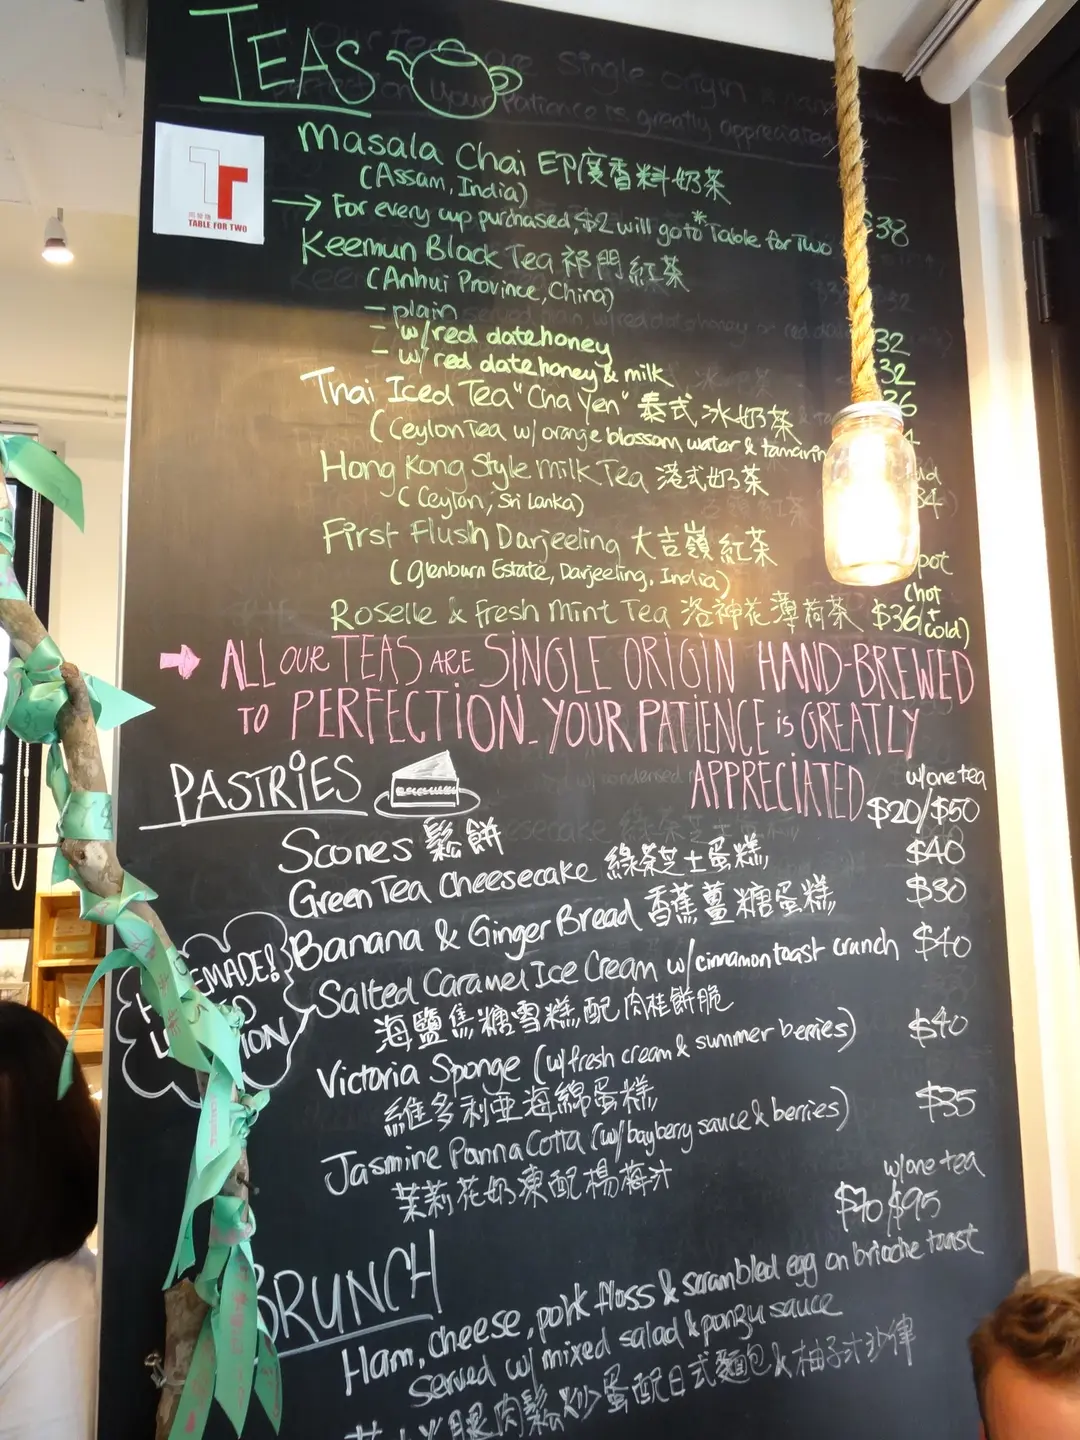 TEAS
Masala Chai 印度香料奶茶
(Assam, India)
TT
TABLE FOR TWO
→ For every cup purchased, $2 will go to *Table for Two $38
Keemun Black Tea 祁門紅茶
(Anhui Province, China)
- plain 32
- w/ red date honey 32
- w/ red date honey & milk
Thai Iced Tea "Cha Yen" 泰式冰奶茶
(Ceylon Tea w/ orange blossom water &
Hong Kong Style Milk Tea 港式奶茶
(Ceylon, Sri Lanka)
First Flush Darjeeling 大吉嶺紅茶
(Glenburn Estate, Darjeeling, India) pot
Roselle & Fresh Mint Tea 洛神花薄荷茶 $36 (hot + cold)
→ ALL OUR TEAS ARE SINGLE ORIGIN HAND-BREWED
TO PERFECTION. YOUR PATIENCE IS GREATLY
APPRECIATED
PASTRIES
w/one tea
Scones 鬆餅 $20/$50
Green Tea Cheesecake 綠茶芝士蛋糕 $40
Banana & Ginger Bread 香蕉薑糖蛋糕 $30
Salted Caramel Ice Cream w/ cinnamon toast crunch $40
海鹽焦糖雪糕配肉桂餅脆
Victoria Sponge (w/ fresh cream & summer berries) $40
維多利亞海綿蛋糕
Jasmine Panna Cotta (w/ bayberry sauce & berries) $35
茉莉花奶凍配楊梅汁
BRUNCH
w/one tea
$70/$95
Ham, cheese, pork floss & scrambled egg on brioche toast
served w/ mixed salad & ponzu sauce
火腿肉鬆炒蛋配日式麵包&柚子汁沙律